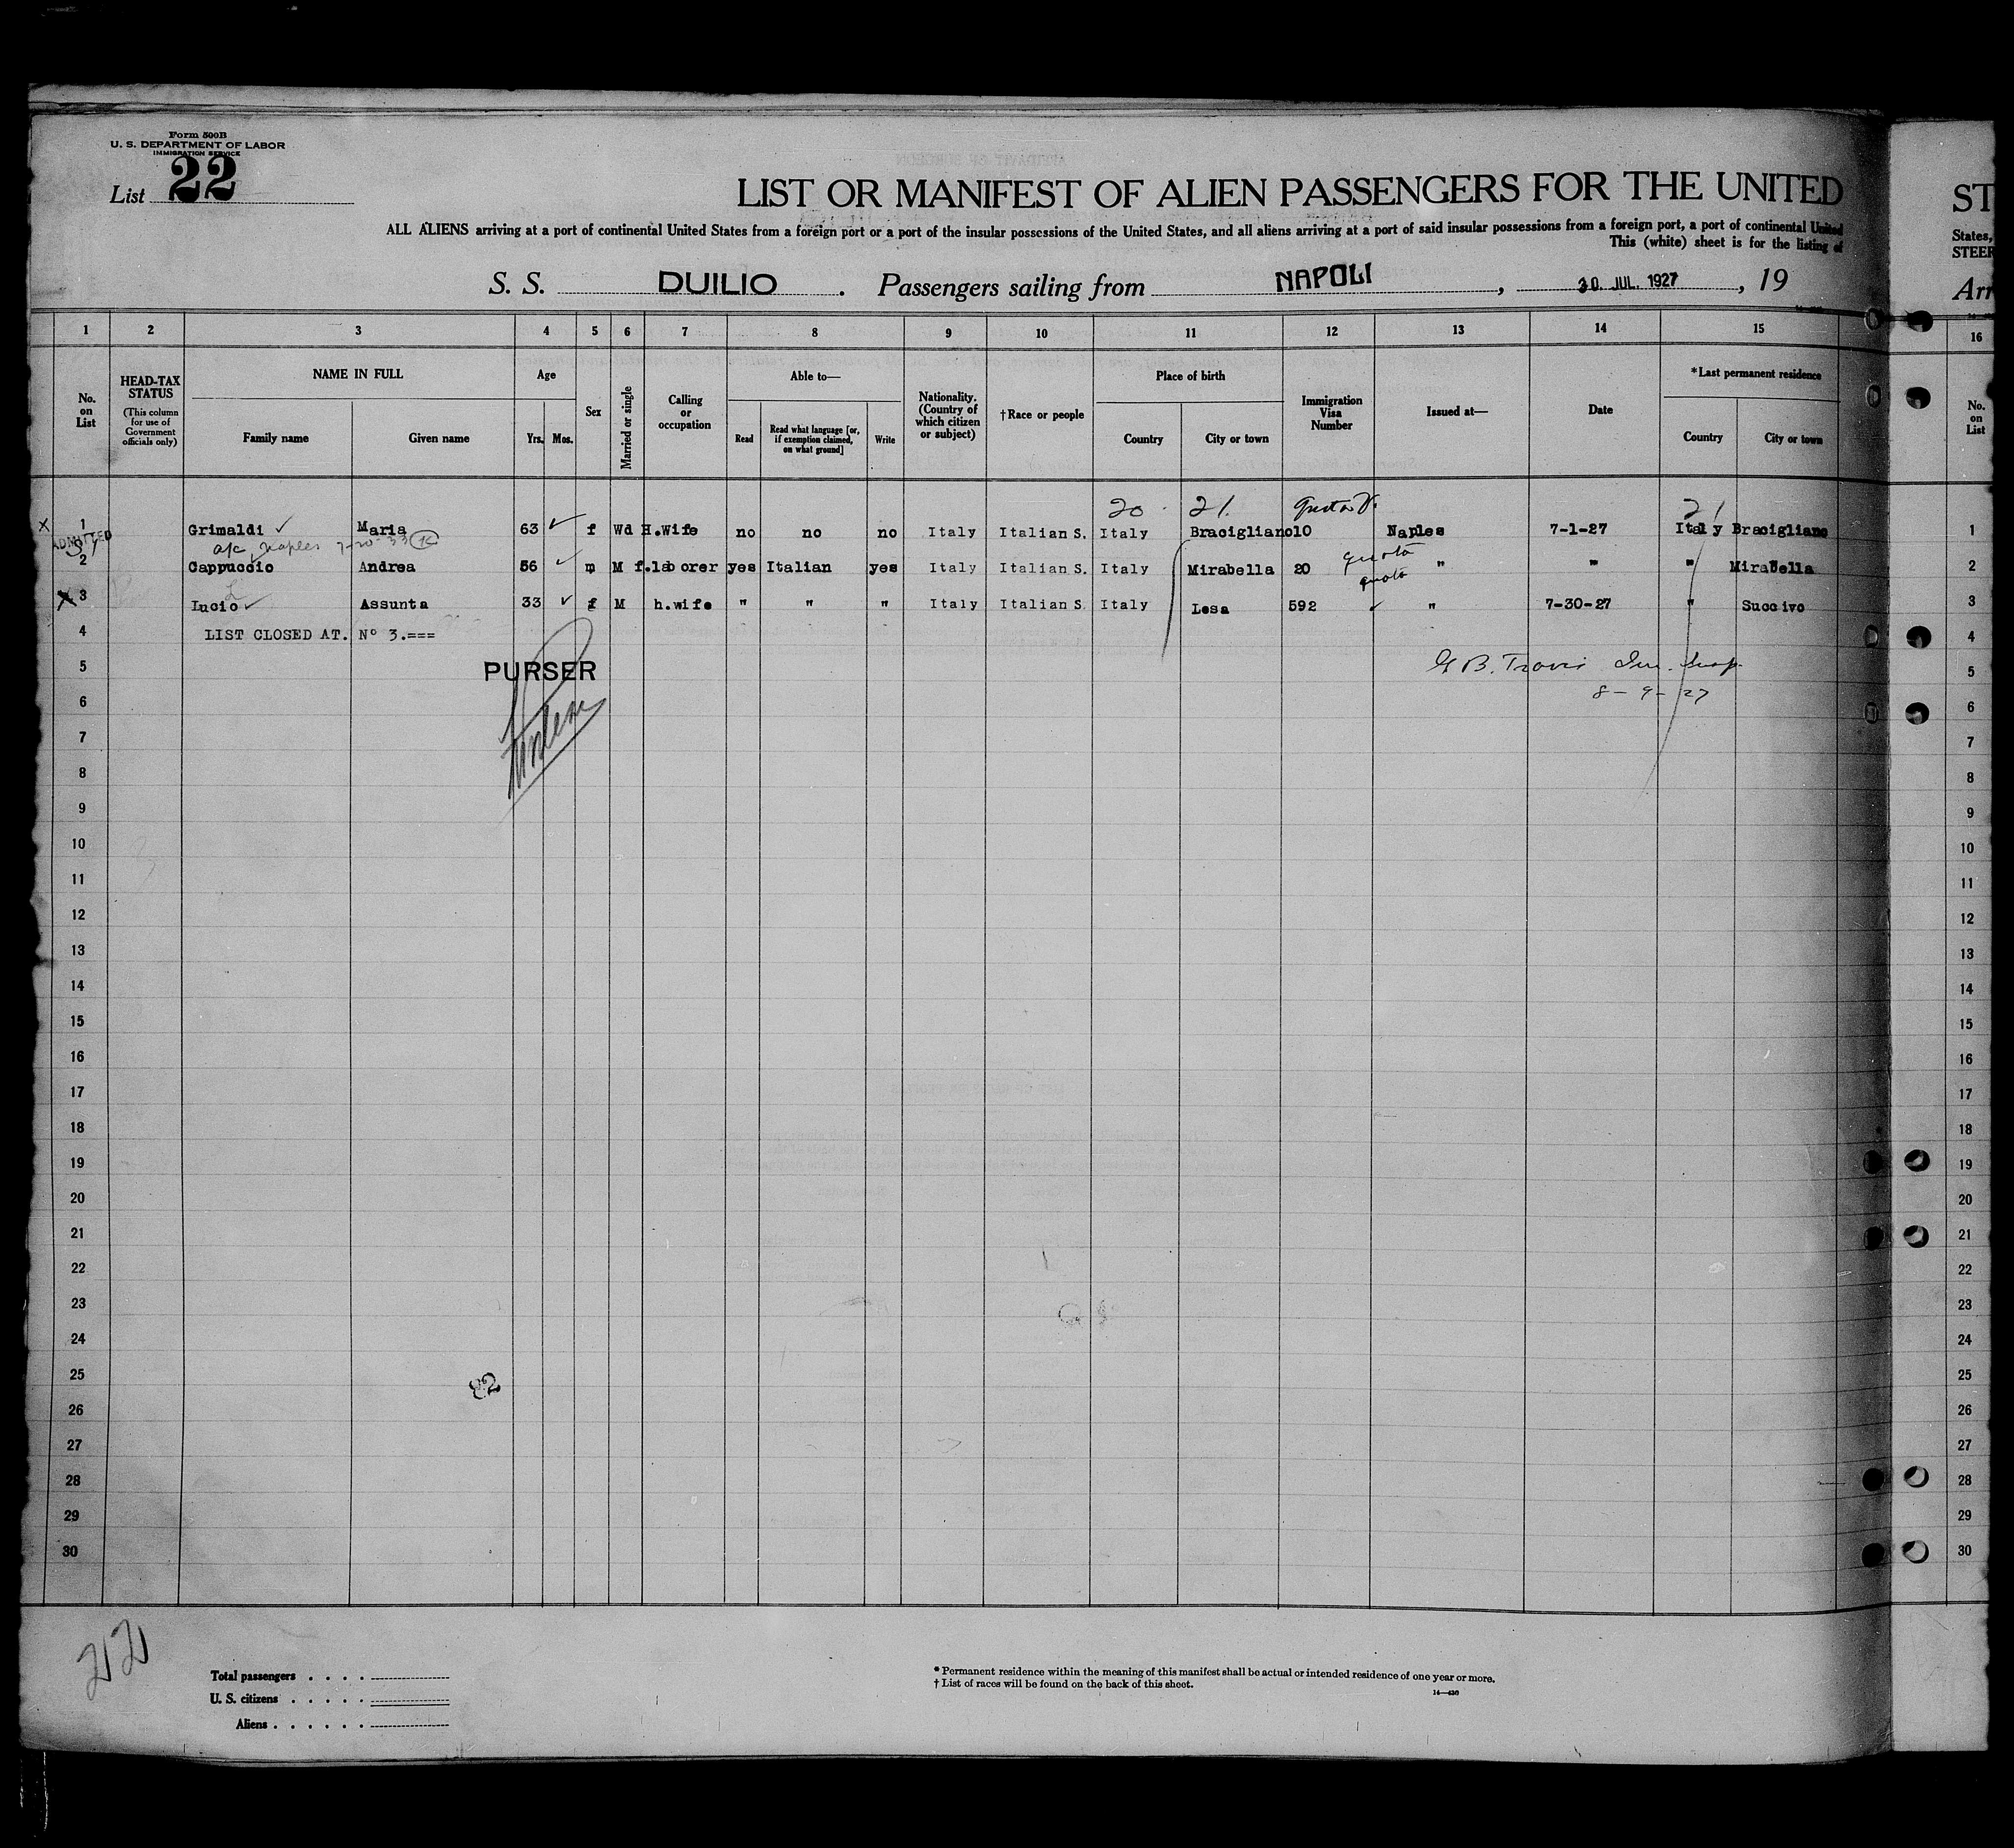 Form 500B
U. S. DEPARTMENT OF LABOR
IMMIGRATION SERVICE
List 22
LIST OR MANIFEST OF ALIEN PASSENGERS FOR THE UNITED
ST
ALL ALIENS arriving at a port of continental United States from a foreign port or a port of the insular possessions of the United States, and all aliens arriving at a port of said insular possessions from a foreign port, a port of continental United
States,
This (white) sheet is for the listing of
STEER
S. S. DUILIO . Passengers sailing from NAPOLI , 30. JUL. 1927 , 19
Arr
1 2 3 4 5 6 7 8 9 10 11 12 13 14 15 16
No. on List
HEAD-TAX STATUS (This column for use of Government officials only)
NAME IN FULL
Family name Given name
Age
Yrs. Mos.
Sex
Married or single
Calling or occupation
Able to—
Read Read what language [or, if exemption claimed, on what ground] Write
Nationality. (Country of which citizen or subject)
†Race or people
Place of birth
Country City or town
Immigration Visa Number
Issued at—
Date
*Last permanent residence
Country City or town
No. on List
20 21. Quota V. 21
x 1 Grimaldi ✓ Maria 63 ✓ f Wd H.Wife no no no Italy Italian S. Italy Bracigliano 10 Naples 7-1-27 Italy Bracigliano 1
ADMITTED
a/c Naples 7-20-33
2 Cappuccio Andrea 56 ✓ m M f.laborer yes Italian yes Italy Italian S. Italy Mirabella 20 quota " " " Mirabella 2
X 3 Lucio ✓ Assunta 33 ✓ f M h.wife " " " Italy Italian S. Italy Lesa 592 quota ✓ " 7-30-27 " Succivo 3
4 LIST CLOSED AT. Nº 3.=== 4
5 PURSER G B. Travis Im. Insp. 5
6 8-9-27 6
7 7
8 8
9 9
10 10
11 11
12 12
13 13
14 14
15 15
16 16
17 17
18 18
19 19
20 20
21 21
22 22
23 23
24 24
25 82 25
26 26
27 27
28 28
29 29
30 30
Total passengers . . . .
U. S. citizens . . . . .
Aliens . . . . . .
* Permanent residence within the meaning of this manifest shall be actual or intended residence of one year or more.
† List of races will be found on the back of this sheet.
14—430